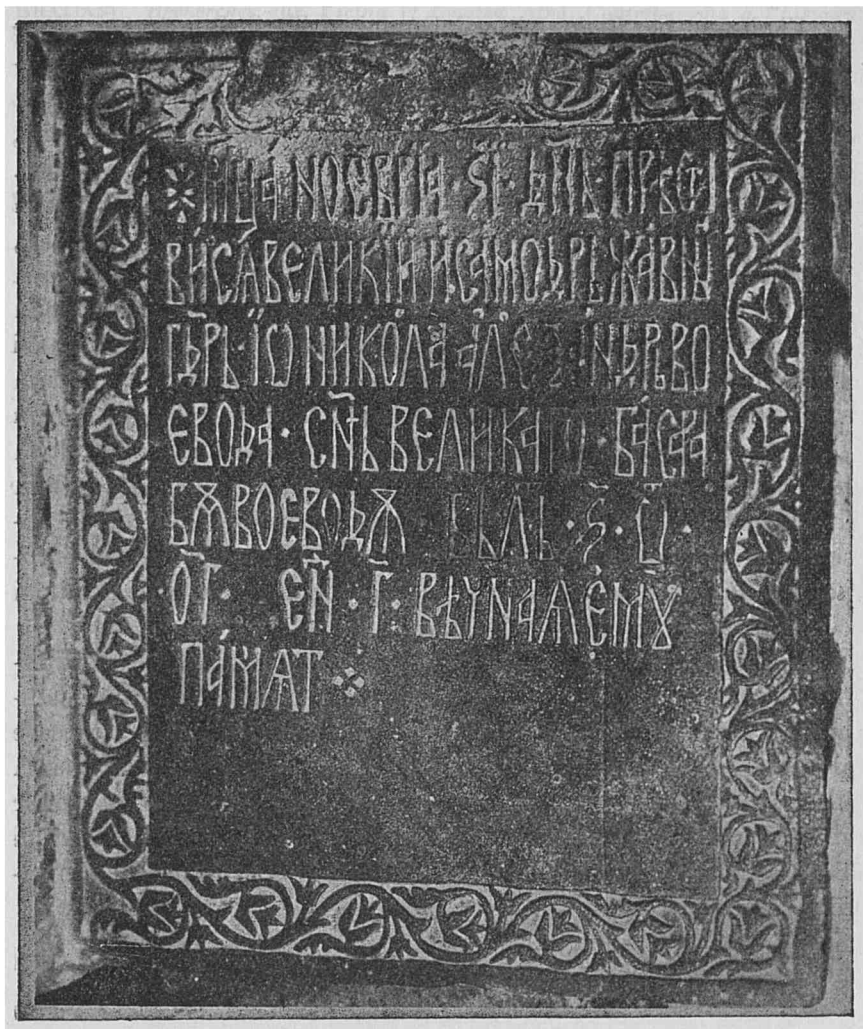 ※ мц҃а ноеврїа · ѕ҃ı · дн҃ь прѣста
ви́сѧ вели́кїи и самодръжавнїи
гдр҃ь · їѡ никола алеѯандрь во
евода · сн҃ь великаго · басара
бѫ воеводѫ въ лѣт · ҂ѕ҃ · ѿ ·
о҃г · ен҃ · г҃ · вѣчнаꙗ емꙋ
памѧт ※